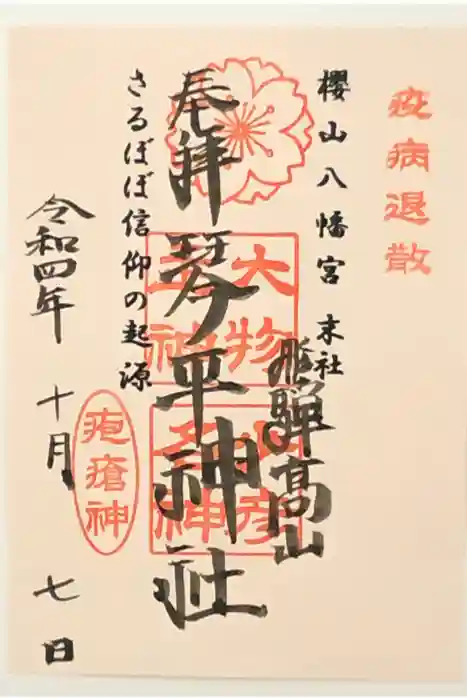 疫病退散
櫻山八幡宮 末社
飛騨高山
奉拝 琴平神社
大物
主神
山彦
之神
さるぼぼ信仰の起源
疱瘡神
令和四年 十月 七日